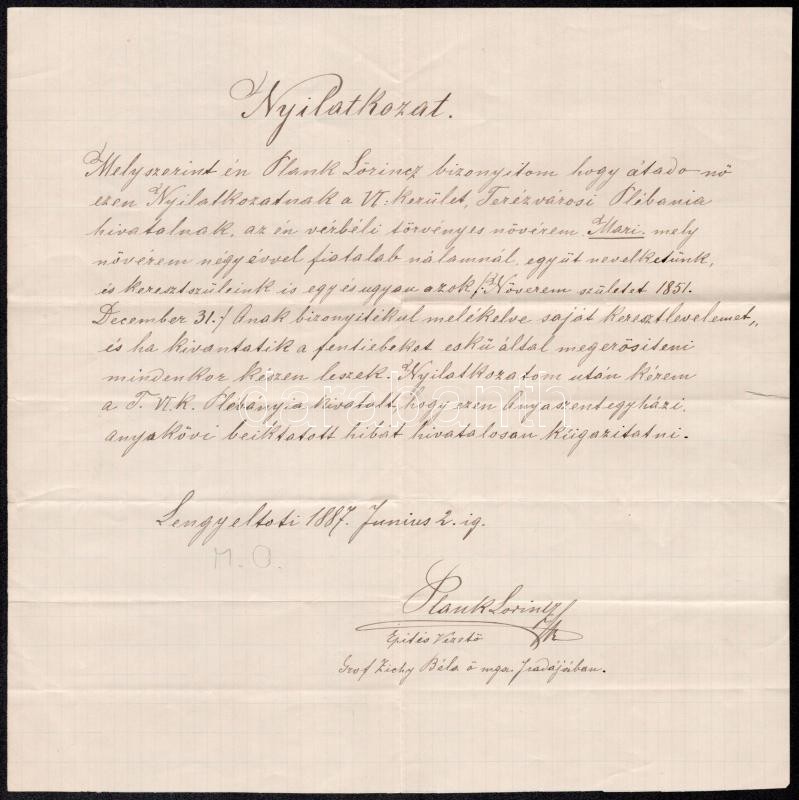 Nyilatkozat.
Melyszerint én Plank Lőrincz bizonyitom hogy átado nő
ezen Nyilatkozatnak a VI. kerület, Terézvárosi Plébania
hivatalnak, az én vérbéli törvényes növérem Mari, mely
növérem négy évvel fiatalab nálamnál, együt nevelketünk,
is keresztszüleink is egy és ugyan azok /: Növerem születet 1851.
December 31. :/ Anak bizonyitékul melékelve saját keresztlevelemet,,
és ha kivantatik a fentiebeket eskü által megerösiteni
mindenkor készen leszek. Nyilatkozatom után kérem
a T. VI. k. Plébányia hivatalt, hogy ezen Anyaszentegyházi,
anyakövi beiktatott hibát hivatalosan kiigazitatni.
Lengyeltoti 1887. Junius 2. ig.
M. O.
Plank Lorincz
Epités Vezetö
Grof Zichy Béla ö mga.
darabanth